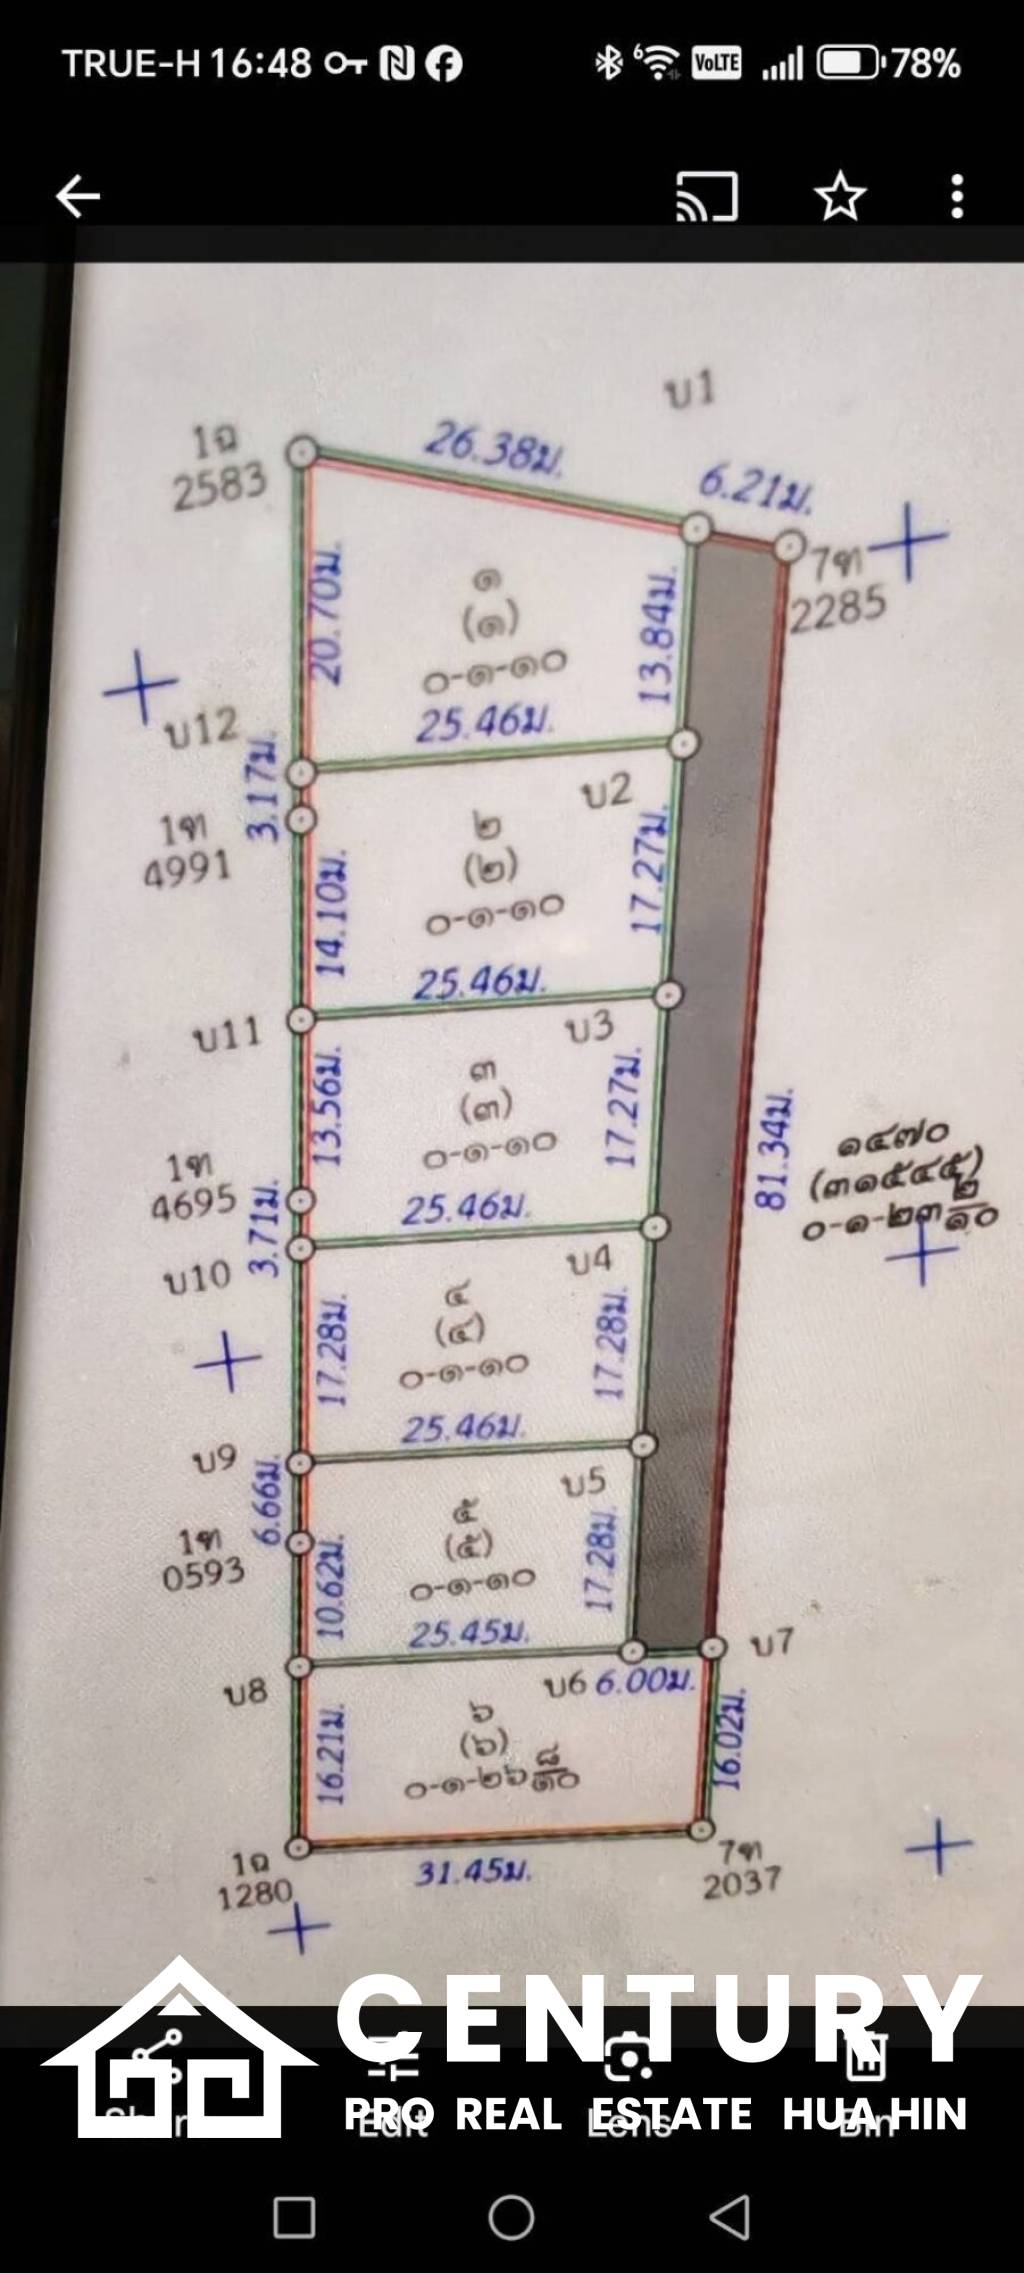 TRUE-H 16:48
6 VoLTE 78%
บ1
26.38ม.
6.21ม.
1ฉ
2583
7ท
2285
20.70ม.
๑
(๑)
๐-๑-๑๐
13.84ม.
25.46ม.
บ12
3.17ม.
บ2
1ท
4991
14.10ม.
๒
(๒)
๐-๑-๑๐
17.27ม.
25.46ม.
บ11
บ3
13.56ม.
๓
(๓)
๐-๑-๑๐
17.27ม.
81.34ม.
๑๔๗๐
(๓๑๕๔๕)
๐-๑-๒๓ ๒/๑๐
1ท
4695
3.71ม.
25.46ม.
บ10
บ4
17.28ม.
๔
(๔)
๐-๑-๑๐
17.28ม.
25.46ม.
บ9
บ5
6.66ม.
1ท
0593
10.62ม.
๕
(๕)
๐-๑-๑๐
17.28ม.
25.45ม.
บ7
บ8
บ6 6.00ม.
16.21ม.
๖
(๖)
๐-๑-๒๖ ๘/๑๐
16.02ม.
1ฉ
1280
31.45ม.
7ท
2037
CENTURY
PRO REAL ESTATE HUA HIN
Share Edit Lens Bin